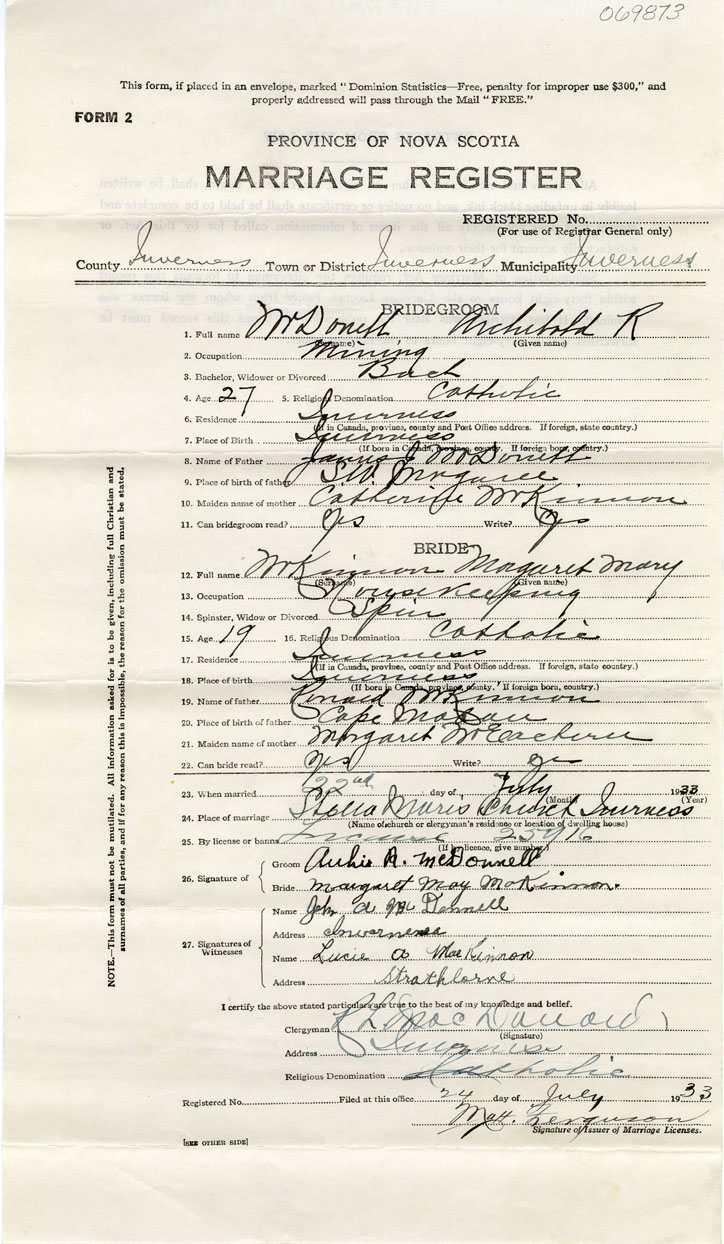 069873
This form, if placed in an envelope, marked "Dominion Statistics—Free, penalty for improper use $300," and
properly addressed will pass through the Mail "FREE."
FORM 2
PROVINCE OF NOVA SCOTIA
MARRIAGE REGISTER
REGISTERED No.
(For use of Registrar General only)
County Inverness Town or District Inverness Municipality Inverness
BRIDEGROOM
1. Full name McDonell Archibald R
(Surname) (Given name)
2. Occupation Mining
3. Bachelor, Widower or Divorced Bach
4. Age 27 5. Religious Denomination Catholic
6. Residence Inverness
(If in Canada, province, county and Post Office address. If foreign, state country.)
7. Place of Birth Inverness
(If born in Canada, province, county. If foreign born, country.)
8. Name of Father James J McDonell
9. Place of birth of father S.W. Margaree
10. Maiden name of mother Catherine McKinnon
11. Can bridegroom read? Yes Write? Yes
BRIDE
12. Full name McKinnon Margaret Mary
(Surname) (Given name)
13. Occupation Housekeeping
14. Spinster, Widow or Divorced Spin
15. Age 19 16. Religious Denomination Catholic
17. Residence Inverness
(If in Canada, province, county and Post Office address. If foreign, state country.)
18. Place of birth Inverness
(If born in Canada, province, county. If foreign born, country.)
19. Name of father Ronald McKinnon
20. Place of birth of father Cape Mabou
21. Maiden name of mother Margaret McEachern
22. Can bride read? Yes Write? Yes
23. When married 22nd day of July 1933
(Month) (Year)
24. Place of marriage Stella Maris Church Inverness
(Name of church or clergyman's residence or location of dwelling house)
25. By license or banns License 25916
(If by licence, give number)
26. Signature of
Groom Archie R. McDonnell
Bride Margaret May MacKinnon.
27. Signatures of Witnesses
Name John A McDonnell
Address Inverness
Name Lucie A MacKinnon
Address Strathlorne
I certify the above stated particulars are true to the best of my knowledge and belief.
Clergyman R L MacDonald
(Signature)
Address Inverness
Religious Denomination Catholic
Registered No. Filed at this office 24 day of July 1933
Matt. Ferguson
Signature of Issuer of Marriage Licenses.
[SEE OTHER SIDE]
NOTE.—This form must not be mutilated. All information asked for is to be given, including full Christian and
surnames of all parties, and if for any reason this is impossible, the reason for the omission must be stated.